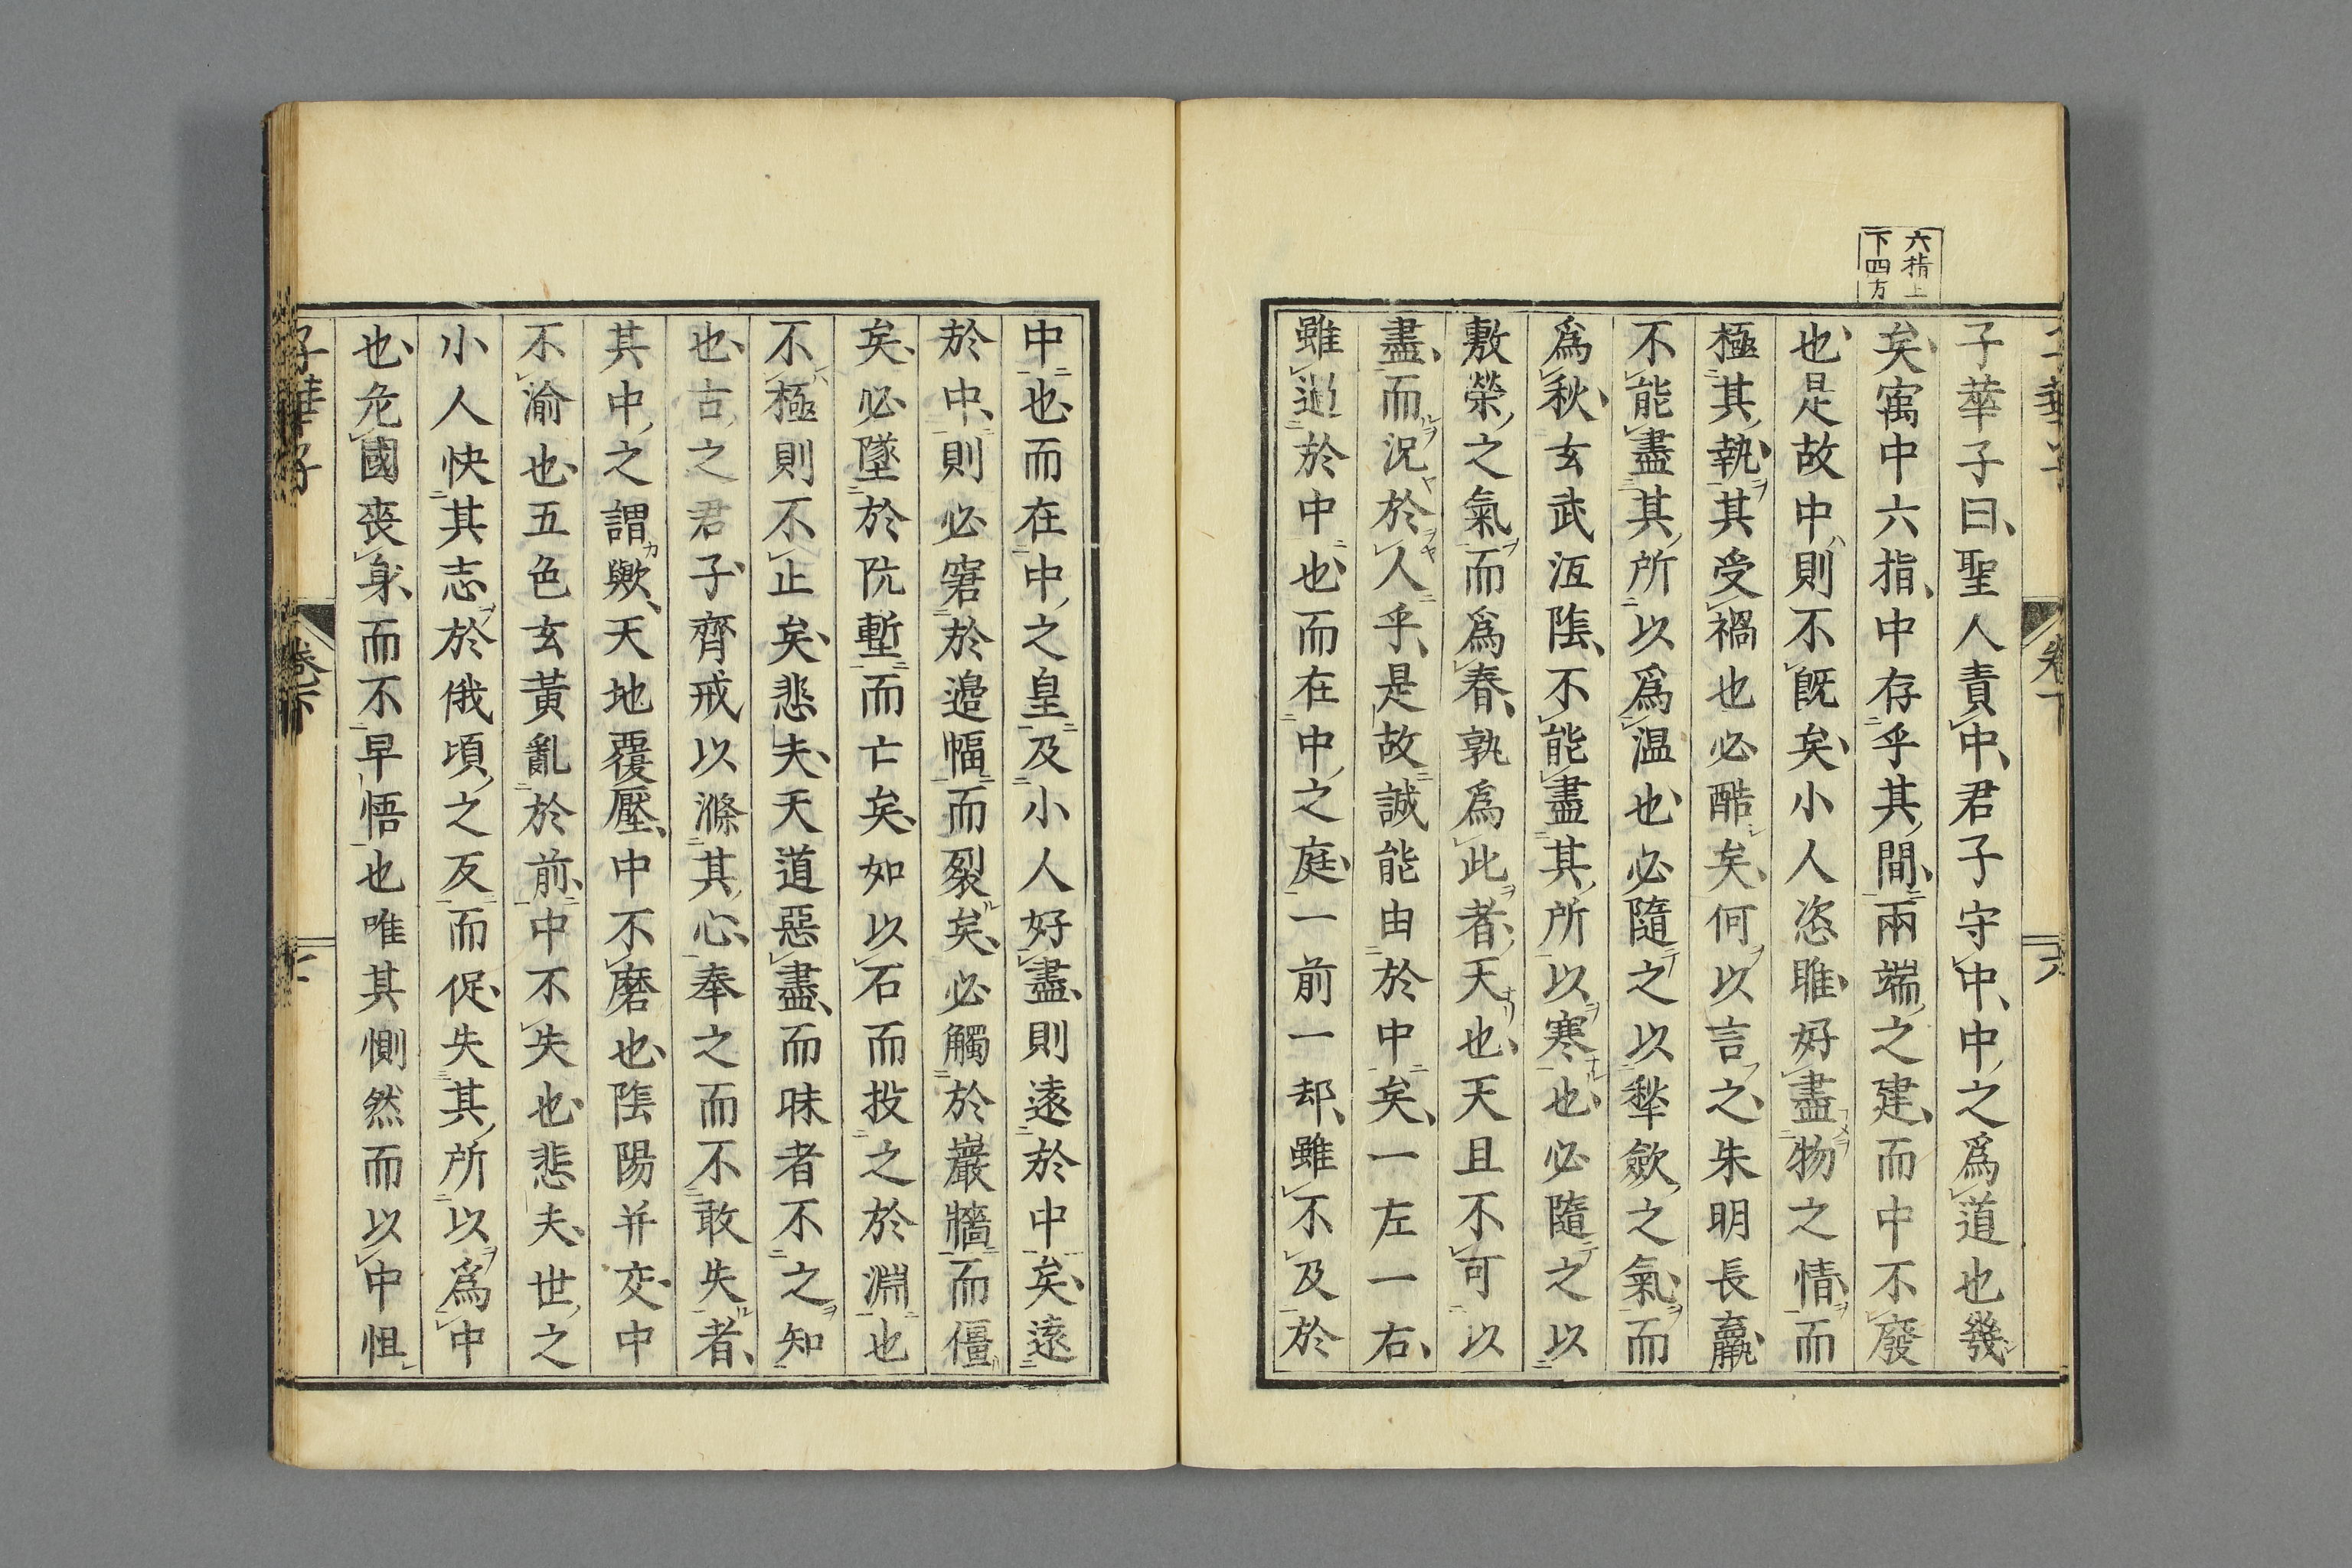 六指上
下四方
子華子曰聖人責中君子守中中之爲道也幾
矣寓中六指中存乎其間兩端之建而中不廢
也是故中則不既矣小人恣睢好盡物之情而
極其執其受禍也必酷矣何以言之朱明長贏
不能盡其所以爲温也必隨之以揫斂之氣而
爲秋玄武沍陰不能盡其所以寒也必隨之以
敷榮之氣而爲春孰爲此者天也天且不可以
盡而況於人乎是故誠能由於中矣一左一右
雖過於中也而在中之庭一前一却雖不及於
中也而在中之皇及小人好盡則遠於中矣遠
於中則必窘於邉幅而裂矣必觸於巖牆而僵
矣必墜於阬塹而亡矣如以石而投之於淵也
不極則不止矣悲夫天道惡盡而昧者不之知
也古之君子齊戒以滌其心奉之而不敢失者
其中之謂歟天地覆壓中不磨也陰陽并交中
不渝也五色玄黃亂於前中不失也悲夫世之
小人快其志於俄頃之反而促失其所以爲中
也危國喪身而不早悟也唯其惻然而以中怛
子華子
卷下